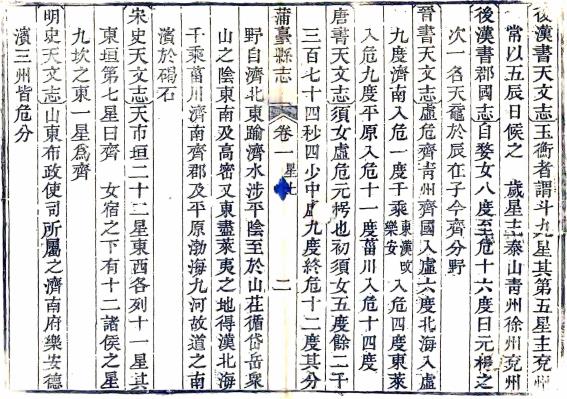 後漢書天文志玉衡者謂斗九星其第五星主兗州
常以五辰日候之　歲星主泰山青州徐州兗州
後漢書郡國志自婺女八度至危十六度曰元枵之
次一名天黿於辰在子今齊分野
晉書天文志虛危齊青州齊國入虛六度北海入虛
九度濟南入危一度千乘東漢改樂安入危四度東萊
入危九度平原入危十一度菑川入危十四度
唐書天文志須女虛危元枵也初須女五度餘二千
三百七十四秒四少中虛九度終危十二度其分
蒲臺縣志　卷一　星土　二
野自濟北東踰濟水涉平陰至於山茌循岱岳衆
山之陰東南及高密又東盡萊夷之地得漢北海
千乘菑川濟南齊郡及平原渤海九河故道之南
濱於碣石
宋史天文志天市垣二十二星東西各列十一星其
東垣第七星曰齊　女宿之下有十二諸侯之星
九坎之東一星爲齊
明史天文志山東布政使司所屬之濟南府樂安德
濱三州皆危分